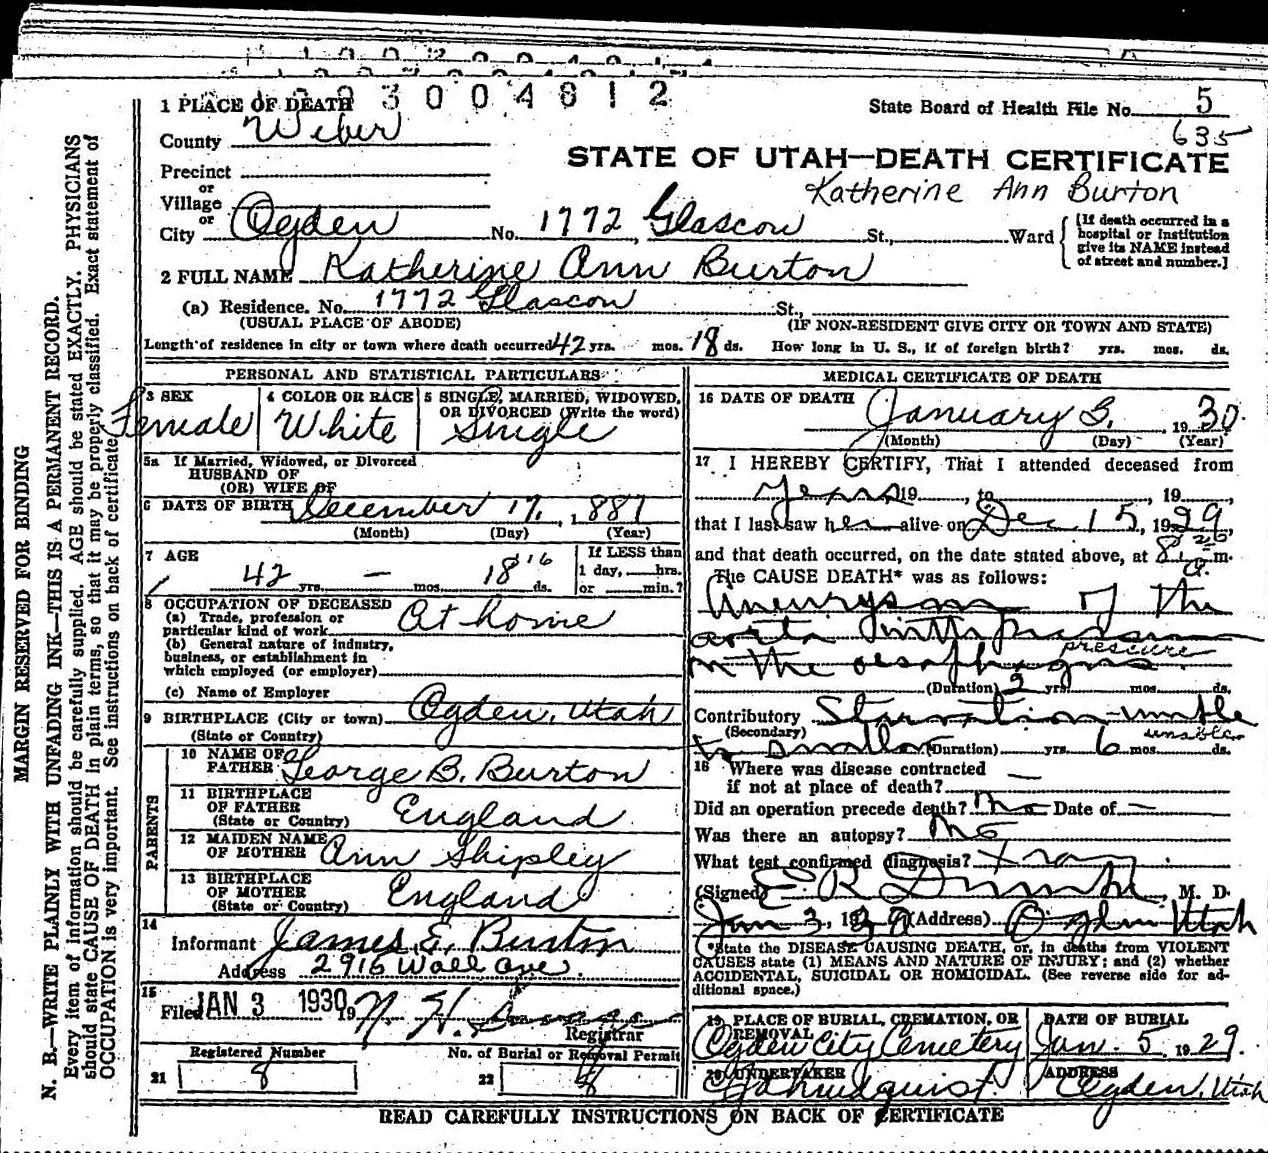 3 0 0 4 8 1 2
1 PLACE OF DEATH
State Board of Health File No. 5
635
County Weber
STATE OF UTAH—DEATH CERTIFICATE
Precinct
Katherine Ann Burton
or
Village
or
City Ogden No. 1772 Glascow St., Ward
[If death occurred in a
hospital or institution
give its NAME instead
of street and number.]
2 FULL NAME Katherine Ann Burton
(a) Residence. No. 1772 Glascow St.,
(USUAL PLACE OF ABODE) (IF NON-RESIDENT GIVE CITY OR TOWN AND STATE)
Length of residence in city or town where death occurred 42 yrs. mos. 18 ds. How long in U. S., if of foreign birth? yrs. mos. ds.
PERSONAL AND STATISTICAL PARTICULARS
3 SEX
Female
4 COLOR OR RACE
White
5 SINGLE, MARRIED, WIDOWED,
OR DIVORCED (Write the word)
Single
5a If Married, Widowed, or Divorced
HUSBAND OF
(OR) WIFE OF
6 DATE OF BIRTH December 17, 1887
(Month) (Day) (Year)
7 AGE
42 yrs. — mos. 18 16 ds.
If LESS than
1 day, hrs.
or min.?
8 OCCUPATION OF DECEASED
(a) Trade, profession or
particular kind of work At home
(b) General nature of industry,
business, or establishment in
which employed (or employer)
(c) Name of Employer
9 BIRTHPLACE (City or town) Ogden, Utah
(State or Country)
PARENTS
10 NAME OF
FATHER George B. Burton
11 BIRTHPLACE
OF FATHER England
(State or Country)
12 MAIDEN NAME
OF MOTHER Ann Shipley
13 BIRTHPLACE
OF MOTHER England
(State or Country)
14
Informant James E. Burton
Address 2916 Wall Ave.
15
Filed JAN 3 1930 19
Registrar
Registered Number
21 8
No. of Burial or Removal Permit
22 8
MEDICAL CERTIFICATE OF DEATH
16 DATE OF DEATH
January 3, 1930
(Month) (Day) (Year)
17 I HEREBY CERTIFY, That I attended deceased from
years 19, to , 19,
that I last saw her alive on Dec 15, 1929,
and that death occurred, on the date stated above, at 8 a. m.
The CAUSE DEATH* was as follows:
Aneurysm of the
aorta with pressure
pressure
on the oesophagus.
(Duration) 2 yrs. mos. ds.
Contributory Starvation—unable
(Secondary) unable
to swallow (Duration) yrs. 6 mos. ds.
18 Where was disease contracted
if not at place of death? —
Did an operation precede death? No Date of —
Was there an autopsy? No
What test confirmed diagnosis? X ray
(Signed) E R M. D.
Jan 3, 1930 (Address) Ogden Utah
*State the DISEASE CAUSING DEATH, or, in deaths from VIOLENT
CAUSES state (1) MEANS AND NATURE OF INJURY; and (2) whether
ACCIDENTAL, SUICIDAL OR HOMICIDAL. (See reverse side for ad-
ditional space.)
19 PLACE OF BURIAL, CREMATION, OR
REMOVAL
Ogden City Cemetery
DATE OF BURIAL
Jan. 5, 1929.
20 UNDERTAKER
ADDRESS
Ogden, Utah
READ CAREFULLY INSTRUCTIONS ON BACK OF CERTIFICATE
MARGIN RESERVED FOR BINDING
N. B.—WRITE PLAINLY WITH UNFADING INK—THIS IS A PERMANENT RECORD.
Every item of information should be carefully supplied. AGE should be stated EXACTLY. PHYSICIANS
should state CAUSE OF DEATH in plain terms, so that it may be properly classified. Exact statement of
OCCUPATION is very important. See instructions on back of certificate.